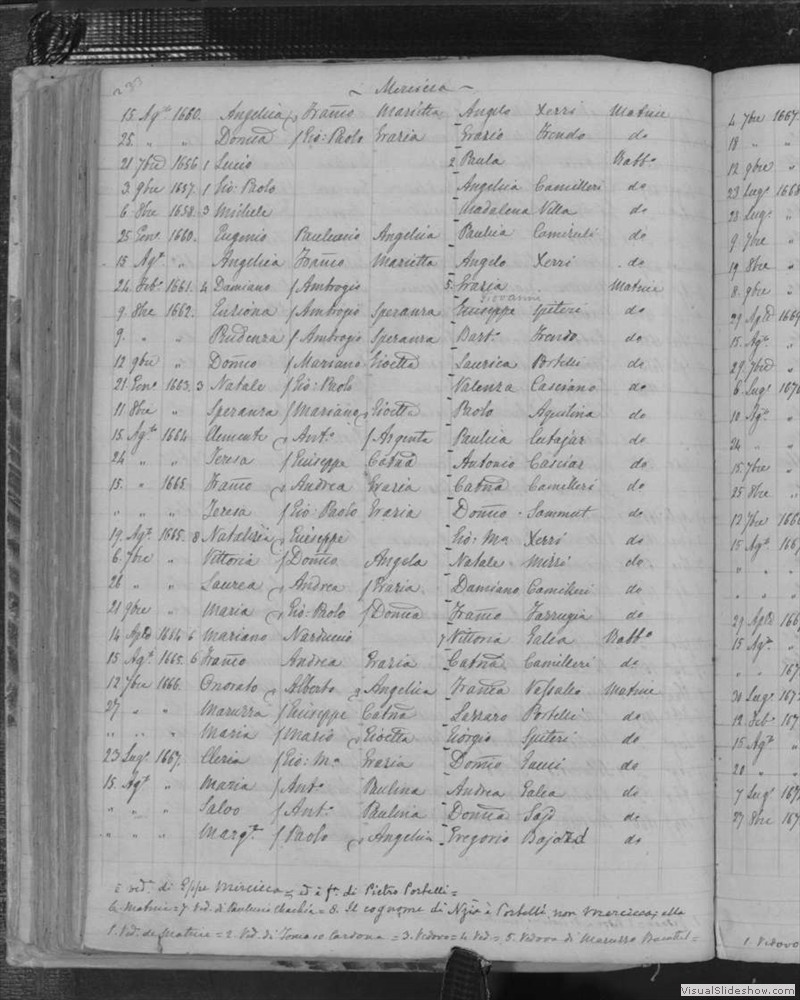 233
~ Mercieca ~
15 Agto 1660. Angelica, Franco Marietta Angelo Xerri Matrice
25. „ „ Domca f Gio: Paolo Grazia Grazio Frendo do
21 7bre 1656 1 Lucio 2 Paula Rabbo
3 9bre 1657. 1 Gio: Paolo Angelica Camilleri do
6 8bre 1658. 3 Michele Madalena Villa do
25 Geno. 1660. Eugenio Angelica Paulica do
15 Agto „ Angelica Franco Marietta Angelo Xerri do
24 Febo 1661. 4 Damiano f Ambrogio 5 Grazia Matrice
Giovanni
9 8bre 1662. f Ambrogio Speranza Giuseppe Spiteri do
9. „ „ Prudenza f Ambrogio Speranza Barto Frendo do
12 9bre „ Domco f Mariano Gioetta Laurica Portelli do
21 Geno 1663. 3 Natale f Gio: Paolo Valenza Casciano do
11 8bre „ Speranza f Mariano, Gioetta Paolo Agostina do
15 Agto 1664 Clemente, Anto f Argenta Paulica Cutajar do
24 „ „ Teresa f Giuseppe Catna Antonio Casciar do
15. „ 1665 Franco, Andrea Grazia Catna Camilleri do
„ „ „ Teresa f Gio: Paolo Grazia Domco Sammut do
19. Agto 1665. 8 Natalizia, Giuseppe Gio: Ma Xerri do
6. 7bre „ Vittoria f Domco Angela Natale Mirri do
26 „ „ Laurea, Andrea f Grazia Damiano Camilleri do
21 9bre „ Maria, Gio: Paolo f Domca Franco Farrugia do
14 1664 6 Mariano Narduccio 7 Vittoria Galea Rabbo
15 Agto 1665. 6 Franco Andrea Grazia Catna Camilleri do
12 7bre 1666. Onorato, Alberto, Angelica Franca Vassallo Matrice
27 „ „ Maruzza f Giuseppe Catna Lazzaro Portelli do
„ „ „ Maria f Mario, Gioetta Giorgio Spiteri do
23 Lugo 1667. Cleria f Gio: Ma Grazia Domco do
15. Agto „ Maria f Anto Paulina Andrea Galea do
„ „ „ Salvo f Anto Paulina Domca Sajd do
„ „ „ Margta f Paolo, Angelica Gregorio Bajada do
= veda di Gppe Mercieca = di Pietro Portelli =
6. Matrice = 7. Ved. di Paulucio = 8. Il cognome di è Portelli, non Mercieca, ella
1. Vedo della Matrice = 2. Ved. di Tomaso Cardona = 3. Vedovo = 4. Ved = 5. Vedova di Maruzzo
4 7bre 1667.
18 „ „
12 9bre „
23 Lugo 1668
23 Lugo „
9 7bre „
19 8bre „
8 9bre „
29 1669
15 Agto „
29. 7bre „
6 Lugo 1670
10 Agto „
24 „ „
15 7bre „
25 8bre „
12 7bre
15 Agto
27
15 Agto „
„ „ 167
30 Lugo 167
12 Febo 167
15 Agto „
20 „ „
7 Lugo 167
27 8bre 167
1. Vedovo
VisualSlideshow.com